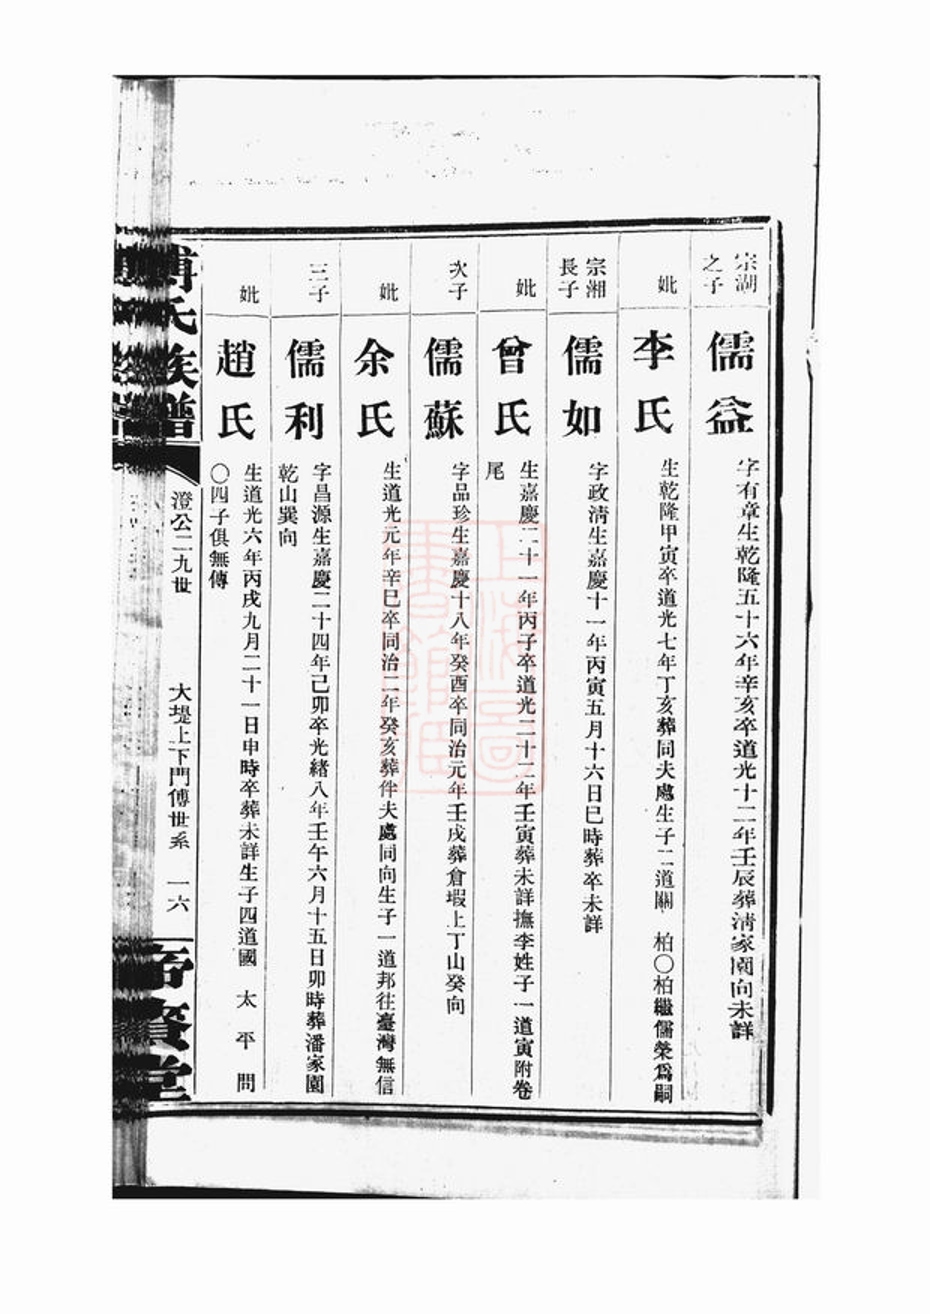 宗湖之子
儒益
字有章生乾隆五十六年辛亥卒道光十二年壬辰葬淸家園向未詳
妣
李氏
生乾隆甲寅卒道光七年丁亥葬同夫處生子二道關 柏〇柏繼儒榮爲嗣
宗湘長子
儒如
字政淸生嘉慶十一年丙寅五月十六日巳時葬卒未詳
妣
曾氏
生嘉慶二十一年丙子卒道光二十二年壬寅葬未詳撫李姓子一道寅附卷
尾
次子
儒蘇
字品珍生嘉慶十八年癸酉卒同治元年壬戌葬倉塅上丁山癸向
妣
余氏
生道光元年辛巳卒同治二年癸亥葬伴夫處同向生子一道邦往臺灣無信
三子
儒利
字昌源生嘉慶二十四年己卯卒光緒八年壬午六月十五日卯時葬潘家園
乾山巽向
妣
趙氏
生道光六年丙戌九月二十一日申時卒葬未詳生子四道國 太 平 問
〇四子俱無傳
傅氏族譜
澄公二九世
大堤上下門傅世系 一六
帝賚堂